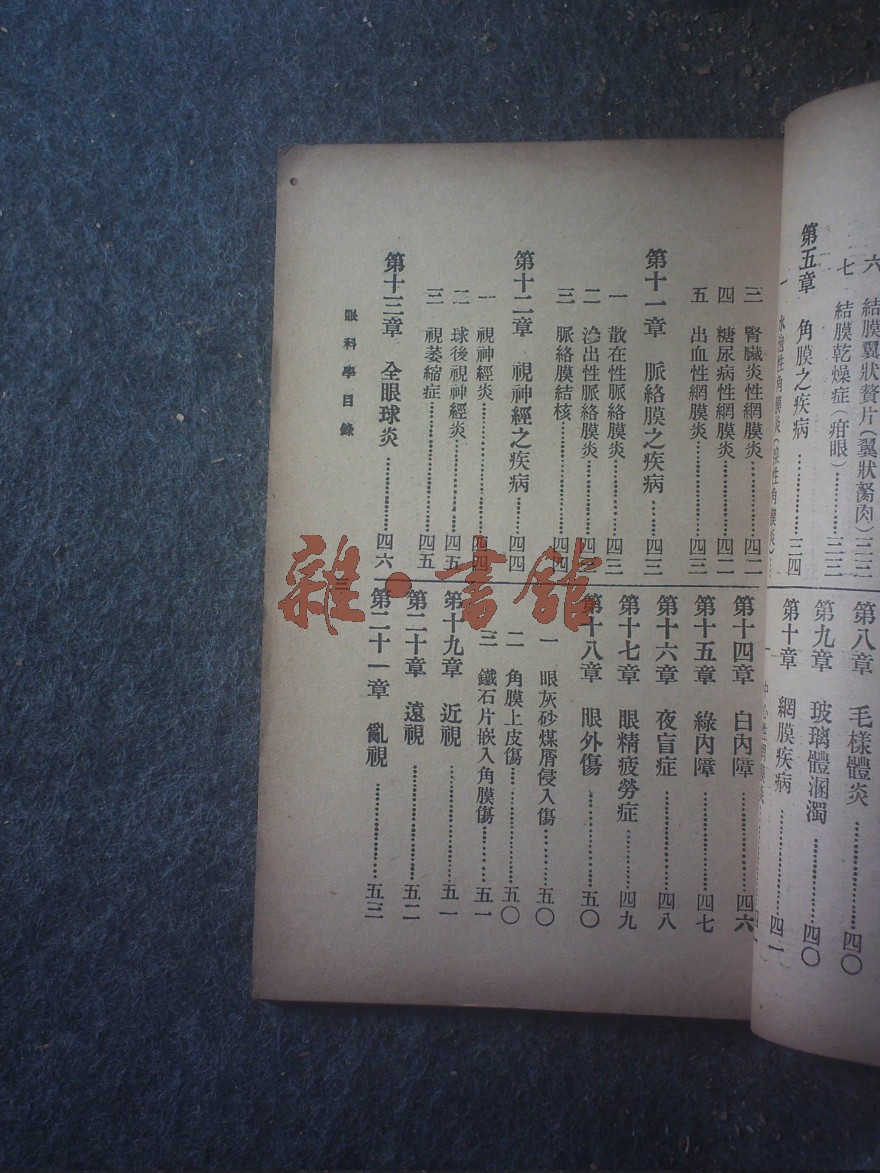 六 結膜翼狀贅片(翼狀胬肉)三三
七 結膜乾燥症(疳眼)…………三三
第五章 角膜之疾病…………三四
第八章 毛樣體炎…………四〇
第九章 玻璃體溷濁…………四〇
第十章 網膜疾病…………四一
三 腎臟炎性網膜炎…………四二
四 糖尿病性網膜炎…………四二
五 出血性網膜炎…………四三
第十一章 脈絡膜之疾病…………四三
一 散在性脈絡膜炎…………四三
二 滲出性脈絡膜炎…………四四
三 脈絡膜結核…………四四
第十二章 視神經之疾病…………四四
一 視神經炎…………四四
二 球後視神經炎…………四五
三 視萎縮症…………四五
第十三章 全眼球炎…………四六
第十四章 白內障…………四六
第十五章 綠內障…………四七
第十六章 夜盲症…………四八
第十七章 眼精疲勞症…………四九
第十八章 眼外傷…………五〇
一 眼灰砂煤屑侵入傷…………五〇
二 角膜上皮傷…………五〇
三 鐵石片嵌入角膜傷…………五一
第十九章 近視…………五一
第二十章 遠視…………五二
第二十一章 亂視…………五三
眼科學目錄
三
雜·書館